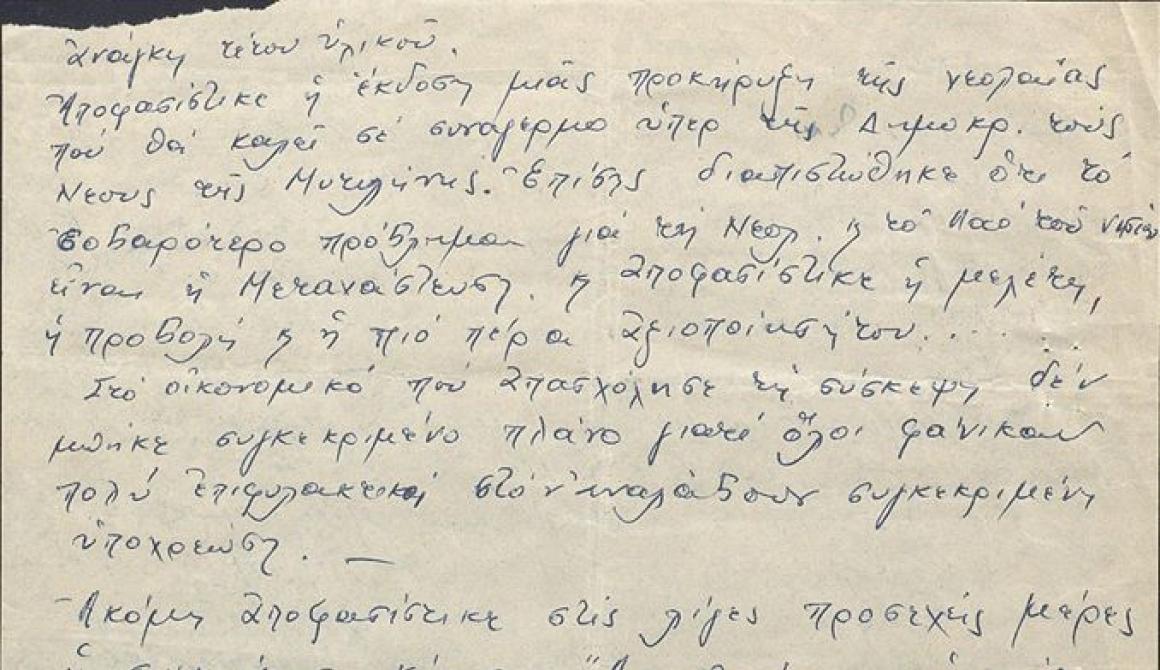 ἀνάγκη τέτιου ὑλικοῦ.
Ἀποφασίστικε ἡ ἔκδοση μιᾶς προκήρυξη τῆς νεολαίας
πού θά καλεῖ σέ συναγερμο ὑπερ τῆς Δημοκρ. τούς
Νεους τῆς Μυτιλήνης. Ἐπίσης διαπιστώθηκε ὅτι τό
σοβαρότερο πρόβλημα γιά τή Νεολ. κ τό Λαό τοῦ νησιοῦ
εἶναι ἡ Μετανάστευση. κ ἀποφασίστικε ἡ μελέτη,
ἡ προβολή κ ἡ πιό πέρα ἀξιοποίησή του....
Στό οἰκονομικό πού ἀπασχόλησε τή σύσκεψη δέν
μπῆκε συγκεκριμένο πλάνο γιατί ὅλοι φάνικαν
πολύ ἐπιφυλακτικοί στό ν' ἀναλάβουν συγκεκριμένη
ὑποχρεώση. —
Ἀκόμη ἀποφασίστικε στίς λίγες προσεχεῖς μέρες